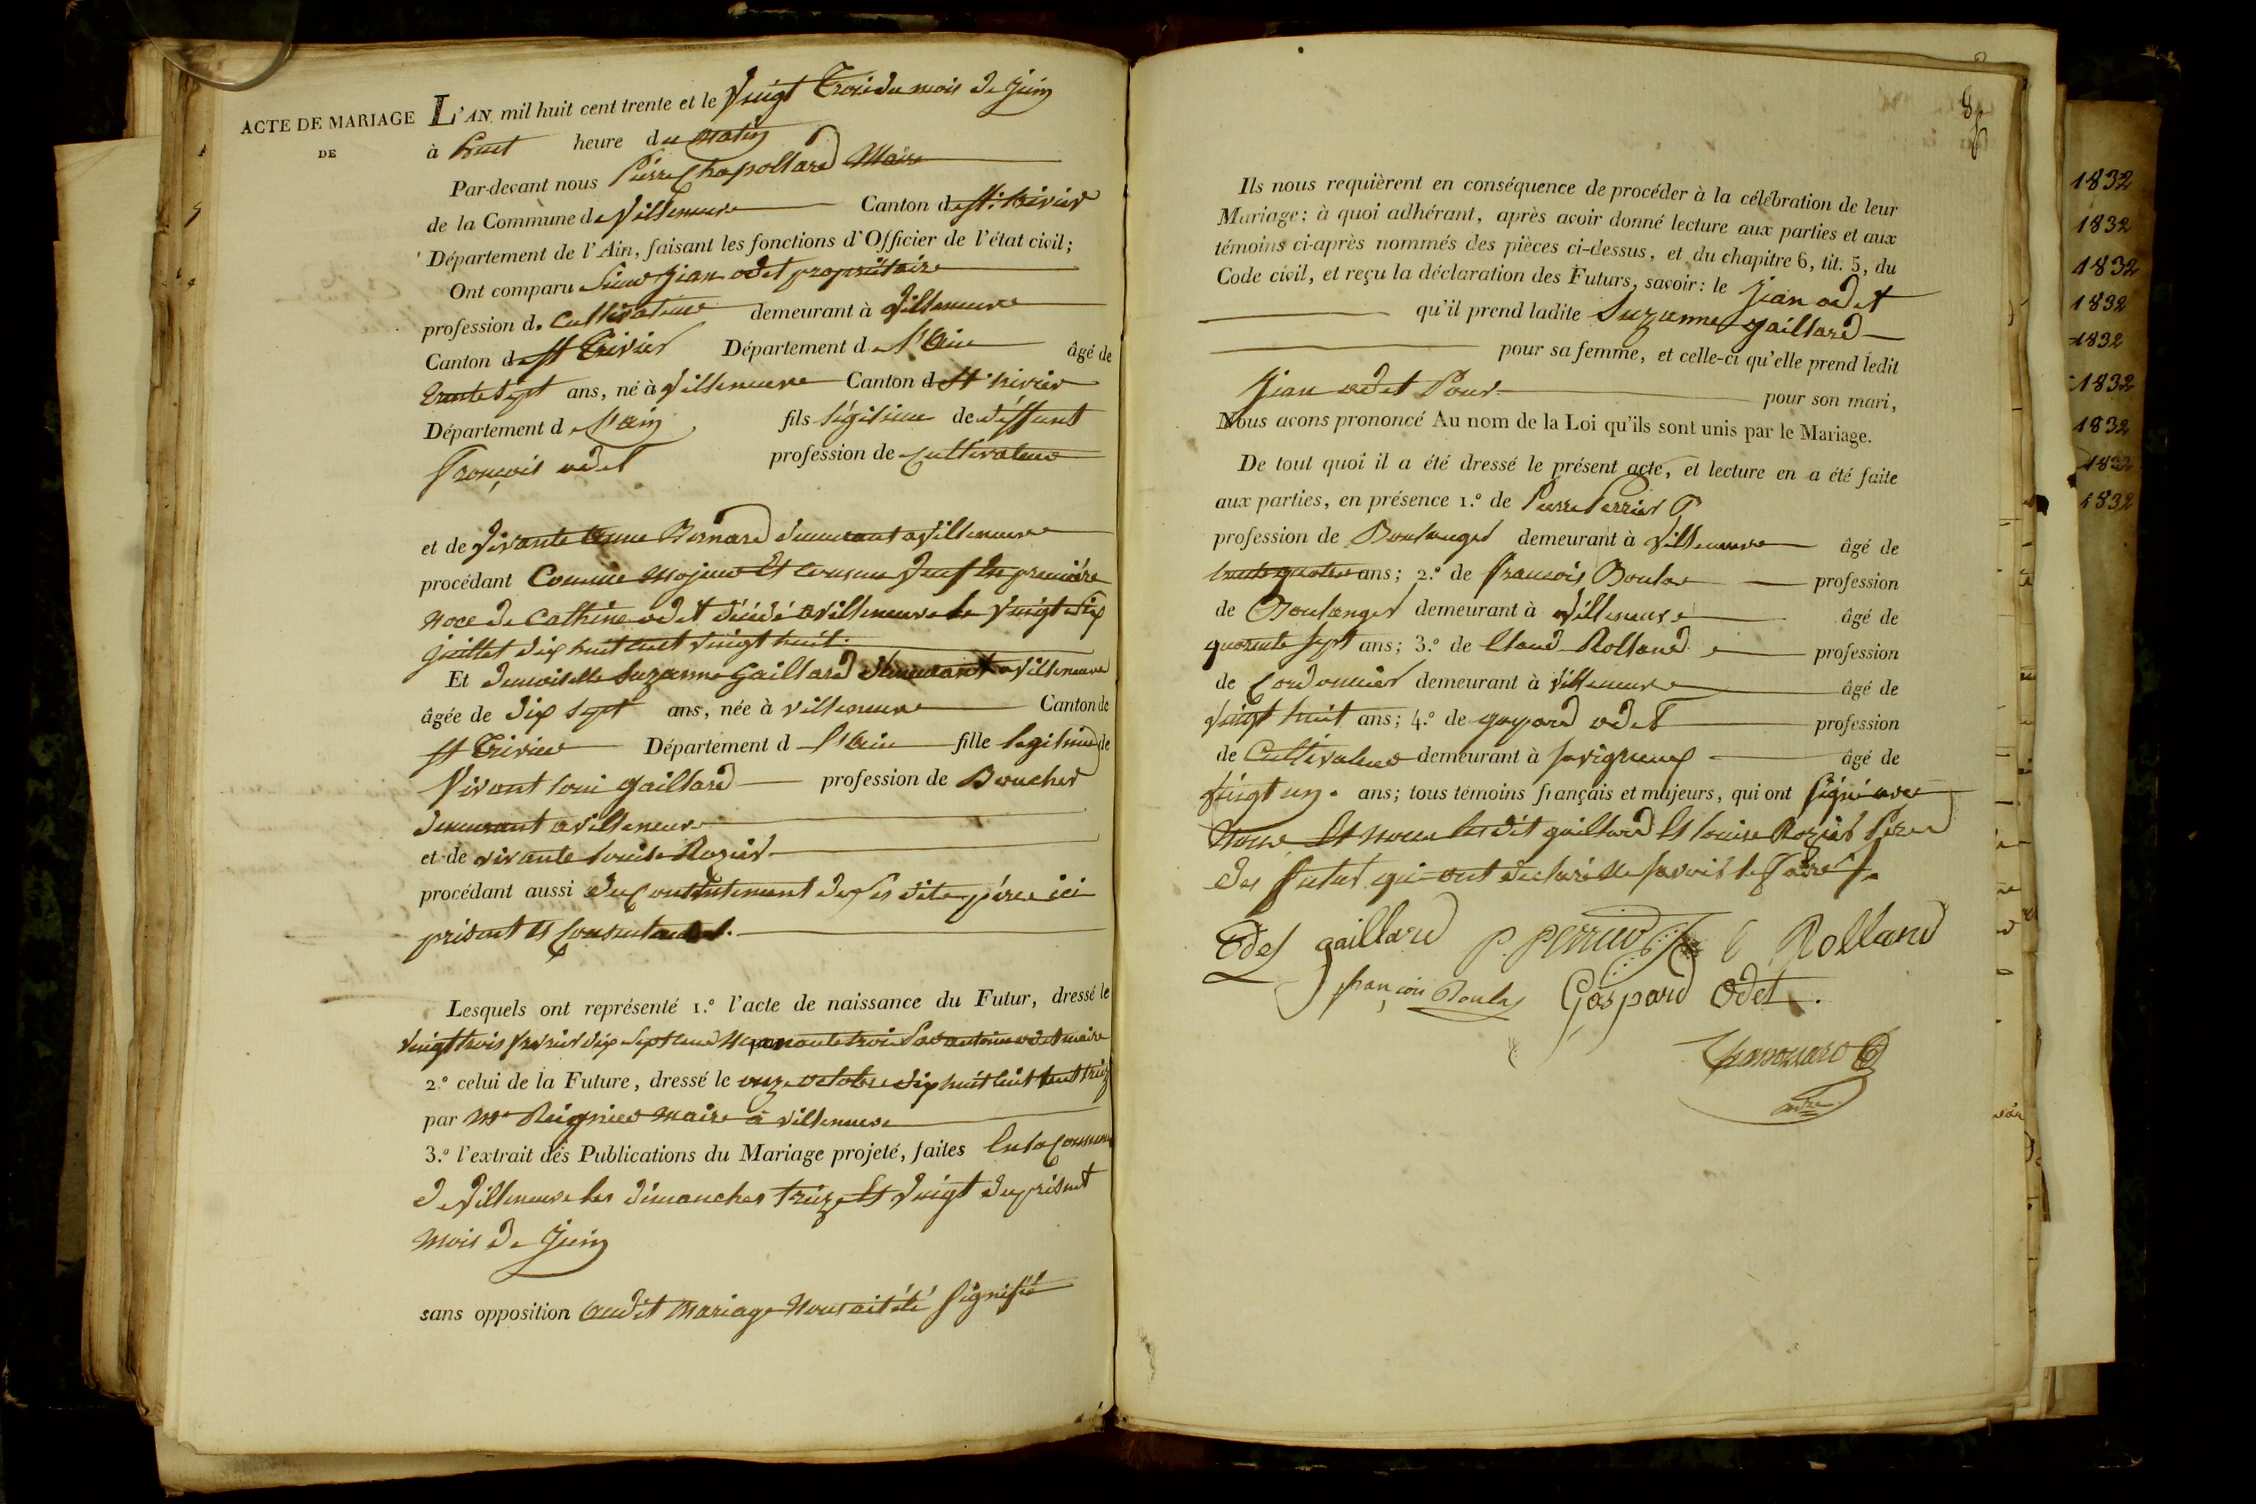 ACTE DE MARIAGE
DE
L'AN mil huit cent trente et le vingt trois du mois de juin
à huit heure du matin
Par-devant nous Pierre Chapollard Maire
de la Commune de Villeneuve Canton de St. trivier
Département de l'Ain, faisant les fonctions d'Officier de l'état civil;
Ont comparu Sieur jean odet propriétaire
profession de Cultivateur demeurant à Villeneuve
Canton de St Trivier Département de l'Ain âgé de
trente sept ans, né à Villeneuve Canton de St trivier
Département de l'ain fils légitime de déffunt
françois odet profession de cultivateur
et de vivante Anne Bernard demeurant a villeneuve
procédant Comme majeur et comme veuf en première
noce de Cathrine odet décédé a villeneuve le vingt six
juillet dix huit cent vingt huit.
Et demoiselle Suzanne Gaillard demeurant a villeneuve
âgée de dix sept ans, née à villeneuve Canton de
St Trivier Département de l'Ain fille legitime de
vivant loui gaillard profession de Boucher
demeurant a villeneuve
et de vivante louise Rozier
procédant aussi du Consentement de ses dits pére ici
présent et Consentant.
Lesquels ont représenté 1.º l'acte de naissance du Futur, dressé le
vingt trois dix sept cent maire
2.º celui de la Future, dressé le onze octobre dix huit cent
par Mr Reignier maire a villeneuve
3.º l'extrait des Publications du Mariage projeté, faites en la Commune
de villeneuve les dimanches treize et vingt du présent
mois de juin
sans opposition audit mariage nous ait été signifié
Ils nous requièrent en conséquence de procéder à la célébration de leur
Mariage: à quoi adhérant, après avoir donné lecture aux parties et aux
témoins ci-après nommés des pièces ci-dessus, et du chapitre 6, tit. 5, du
Code civil, et reçu la déclaration des Futurs, savoir: le jean odet
qu'il prend ladite Suzanne gaillard
pour sa femme, et celle-ci qu'elle prend ledit
jean odet Pour pour son mari,
Nous avons prononcé Au nom de la Loi qu'ils sont unis par le Mariage.
De tout quoi il a été dressé le présent acte, et lecture en a été faite
aux parties, en présence 1.º de Pierre Perrier
profession de Boulanger demeurant à villeneuve âgé de
trente quatre ans; 2.º de francois Boulas profession
de Boulanger demeurant à villeneuve âgé de
quarente sept ans; 3.º de Claud Rolland profession
de Cordonnier demeurant à villeneuve âgé de
vingt huit ans; 4.º de gaspard odet profession
de Cultivateur demeurant à savigneux âgé de
vingt un. ans; tous témoins français et majeurs, qui ont signé avec
nous et non les dit gaillard et louise Rozier
des futur qui ont déclaré ne savoir le faire.
Odet gaillard P. Perrier C Rolland
françois Boulas Gaspard Odet.
1832
1832
1832
1832
1832
1832
1832
1832
1832